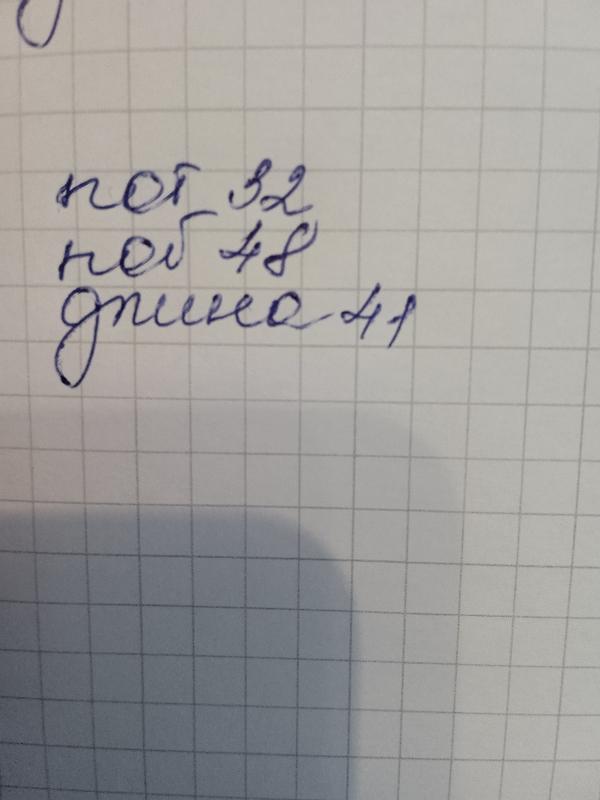 пот 32
поб 48
длина 41